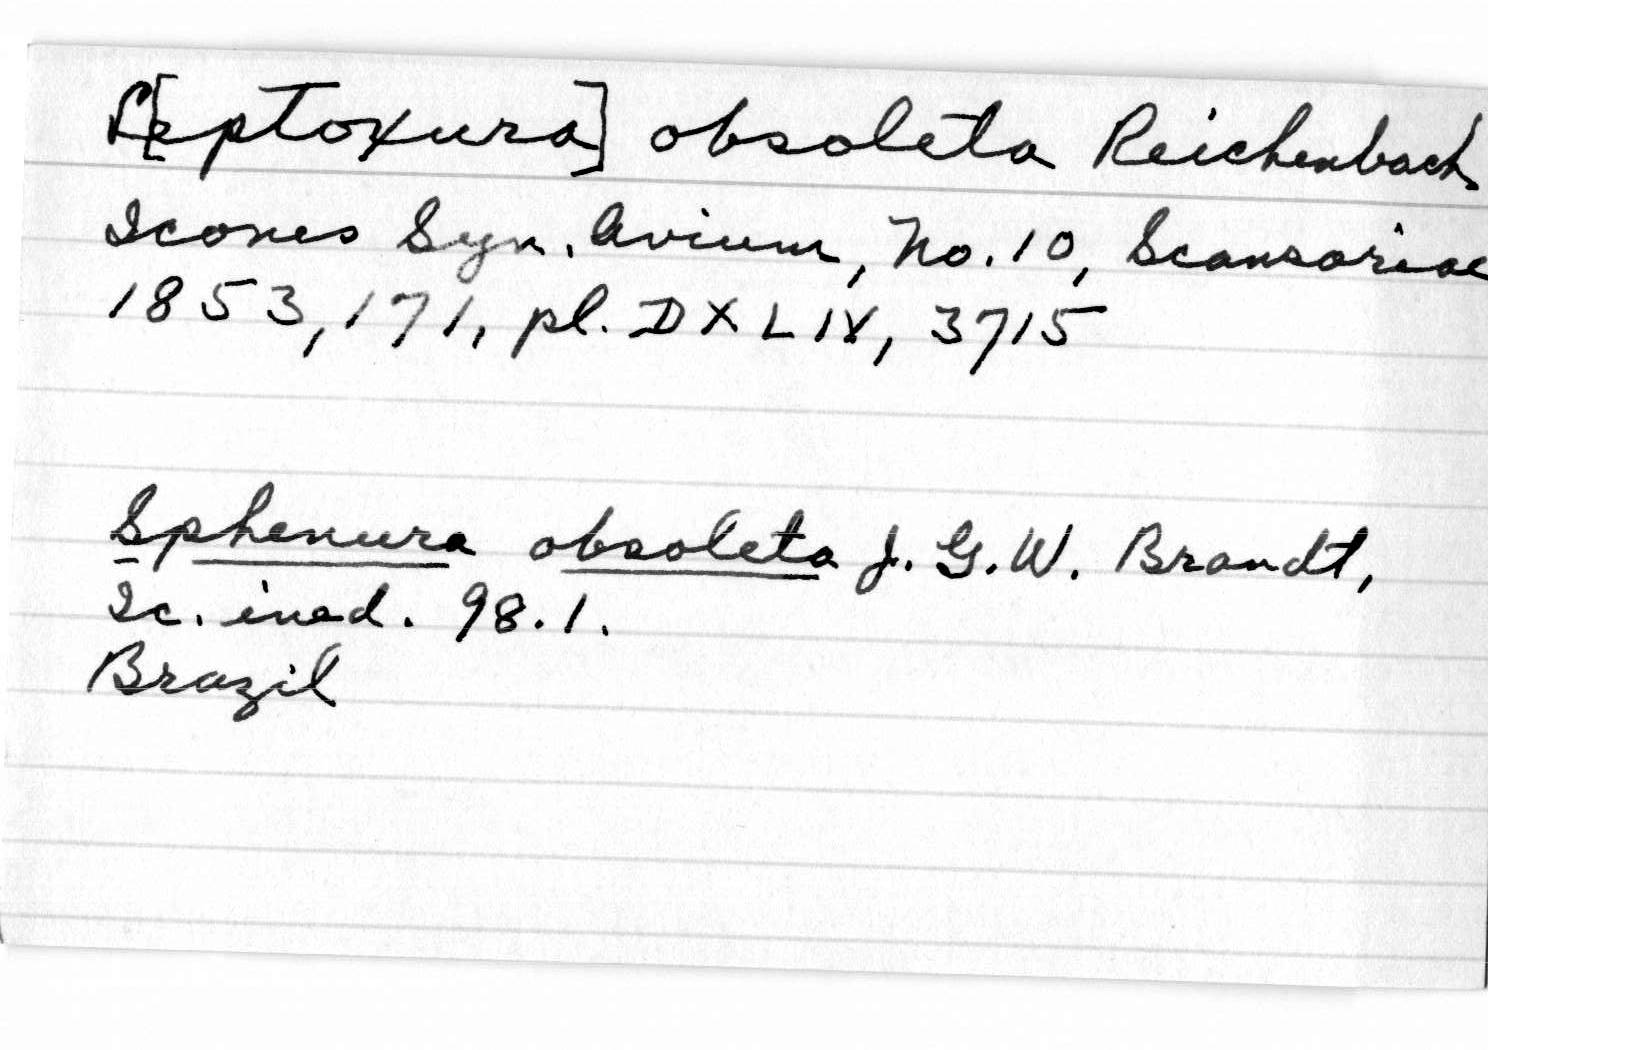 L[eptoxura] obsoleta Reichenbach
Icones Syn. Avium, No. 10, Scansoriae
1853, 171, pl. DXLIV, 3715
Sphenura obsoleta J. G. W. Brandt,
Ic. ined. 98.1.
Brazil